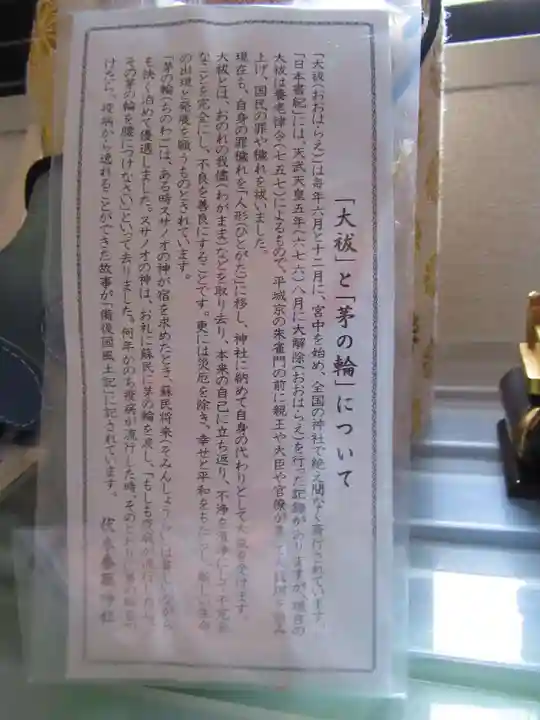 「大祓」と「茅の輪」について
「大祓(おおはらえ)」は毎年六月と十二月に、宮中を始め、全国の神社で絶え間なく斎行されています。
「日本書紀」には、天武天皇五年(六七六)八月に大解除(おおはらえ)を行った記録がありますが、現在の
大祓は養老律令(七五七)によるもので、平城京の朱雀門の前に親王や大臣や官僚が
上げ、国民の罪や穢れを祓いました。
現在も、自身の罪穢れを「人形(ひとがた)」に移し、神社に納めて自身の代わりとして
大祓とは、おのれの我儘(わがまま)などを取り去り、本来の自己に立ち返り、不浄を清浄にし、不完全
なことを完全にし、不良を善良にすることです。更には災厄を除き、幸せと平和をもたらし、新しい生命
の出現と発展を願うものとされています。
「茅の輪(ちのわ)」は、ある時スサノオの神が宿を求めたとき、蘇民将来(そみんしょうらい)は貧しいながら
も快く泊めて優遇しました。スサノオの神は、お礼に蘇民に茅の輪を渡し、「もしも疫病が流行したら、
その茅の輪を腰につけなさい」といって去りました。何年かのち疫病が流行した時、そのとおりに茅の輪を
けたら、疫病から逃れることができた故事が「備後国風土記」に記されています。
神社